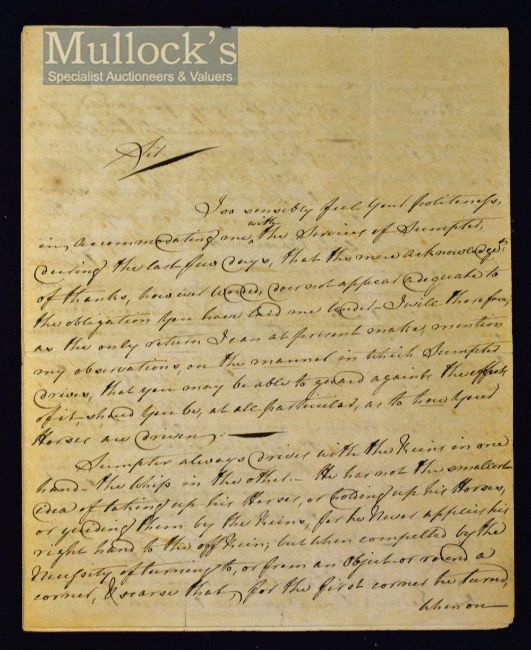 Mullock's
Specialist Auctioneers & Valuers
Sir
I so sensibly feel your Politeness,
in accommodating me, with the Services of Sumpter,
during the last few days, that the mere acknowledgets
of thanks, however worded, does not appear adequate to
the obligation you have laid me under - I will therefore,
as the only return I can at present make, mention
my observations, on the manner in which Sumpter
drives, that you may be able to guard against the effects
of it, should you be, at all particular, as to how your
Horses are driven;
Sumpter always drives with the Reins in one
hand - the Whip in the other - He has not the smallest
idea of taking up his Horses, or holding up his Horses,
or guiding them by the Reins, for he never applies his
right hand to the off Rein, but when compelled by the
Necessity of turning to, or from an Object or round a
corner, & scarse that, for the first corner he turned,
when on